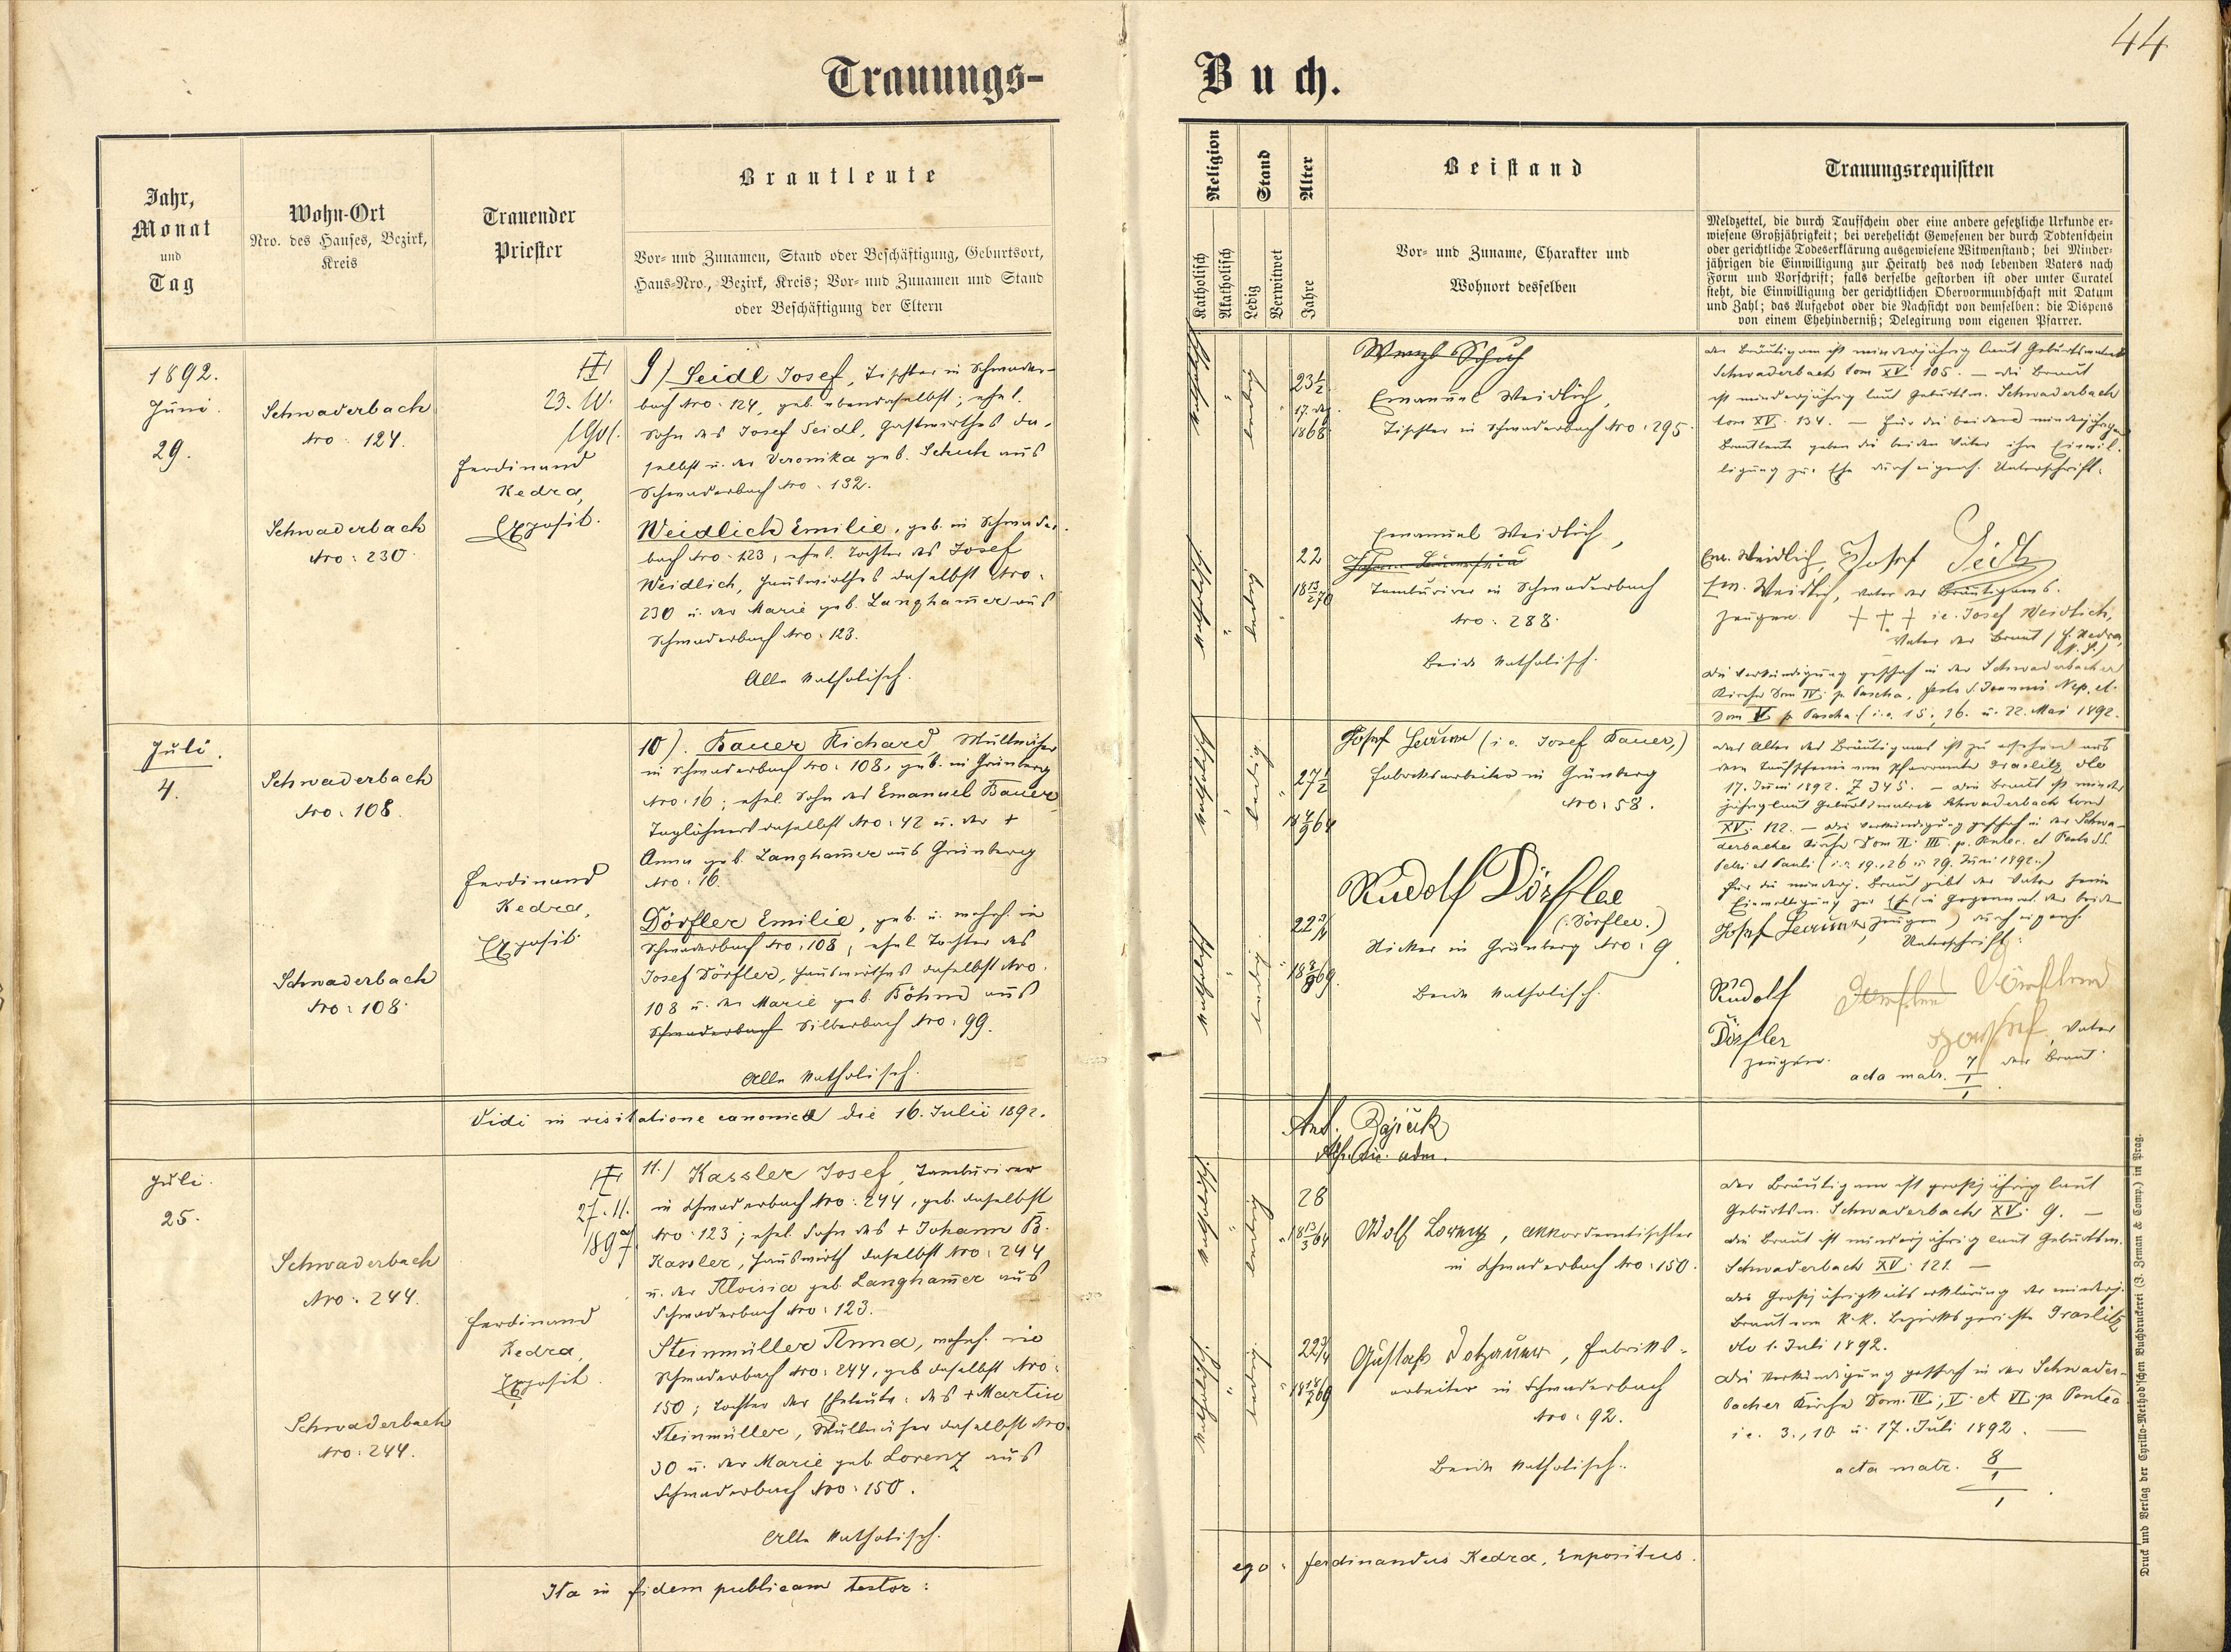 44
Trauungs-
Buch.
Jahr,
Monat
und
Tag
Wohn-Ort
Nro. des Hauses, Bezirk,
Kreis
Trauender
Priester
Brautleute
Vor- und Zunamen, Stand oder Beschäftigung, Geburtsort,
Haus-Nro., Bezirk, Kreis; Vor- und Zunamen und Stand
oder Beschäftigung der Eltern
Religion
Katholisch
Akatholisch
Stand
Ledig
Verwitwet
Alter
Jahre
Beistand
Vor- und Zuname, Charakter und
Wohnort desselben
Trauungsrequisiten
Meldzettel, die durch Taufschein oder eine andere gesetzliche Urkunde er-
wiesene Großjährigkeit; bei verehelicht Gewesenen der durch Todtenschein
oder gerichtliche Todeserklärung ausgewiesene Witwenstand; bei Minder-
jährigen die Einwilligung zur Heirath des noch lebenden Vaters nach
Form und Vorschrift; falls derselbe gestorben ist oder unter Curatel
steht, die Einwilligung der gerichtlichen Obervormundschaft mit Datum
und Zahl; das Aufgebot oder die Nachsicht von demselben: die Dispens
von einem Ehehinderniß; Delegirung vom eigenen Pfarrer.
1892.
Juni
29.
Schwaderbach
Nro: 124.
Schwaderbach
Nro: 230
23.
1901.
Ferdinand
Kedra,
Exposit.
9) Seidl Josef, Tischler in Schwader-
bach Nro: 124, geb. ebendaselbst; ehel.
Sohn des Josef Seidl, Gastwirthes da-
selbst u. der Veronika geb. Schuh aus
Schwaderbach Nro: 132.
Weidlich Emilie, geb. in Schwader-
bach Nro: 123, ehel. Tochter des Josef
Weidlich, Hauswirthes daselbst Nro:
230 u. der Marie geb. Langham̅er aus
Schwaderbach Nro: 123.
Alle katholisch.
katholisch
ledig
23½
17.
1868
22
18 13/2 70
Wenzl Schuh
Emanuel Weidlich,
Tischler in Schwaderbach Nro: 295.
Emanuel Weidlich,
Tambourirer in Schwaderbach
Nro: 288.
Beide katholisch.
der Bräutigam ist minderjährig laut Geburtsmatrik
Schwaderbach tom XV: 105. — die Braut
ist minderjährig laut Geburtsm. Schwaderbach
tom XV: 134. — Für die beiden minderjährigen
Brautleute geben die beiden Väter ihre Einwil-
ligung zur Ehe durch eigenh. Unterschrift.
Em. Weidlich, Josef Seidl
Em. Weidlich, Vater des Bräutigams.
Zeugen. + + + i.e. Josef Weidlich,
Vater der Braut / F. Kedra,
die Verkündigung geschah in der Schwaderbacher
Kirche Dom IV: p. Pascha, festo S. Joannis Nep. et
Dom V p. Pascha (i.e. 15., 16. u. 22. Mai 1892.
Juli.
4.
Schwaderbach
Nro: 108.
Schwaderbach
Nro: 108
Ferdinand
Kedra,
Exposit.
10). Bauer Richard,
in Schwaderbach Nro: 108, geb. in Grünberg
Nro: 16; ehel. Sohn des Emanuel Bauer,
Taglöhners daselbst Nro: 42 u. der +
Anna geb. Langham̅er aus Grünberg
Nro: 16.
Dörfler Emilie, geb. u. wohnh. in
Schwaderbach Nro: 108, ehel. Tochter des
Josef Dörfler, Hauswirthes daselbst Nro.
108 u. der Marie geb. Böhm aus
Schwaderbach Silberbach Nro: 99.
Alle katholisch.
katholisch
ledig
27½
18 64
22¾
18 69
Josef Bauer (i.e. Josef Bauer,)
Fabriksarbeiter in Grünberg
Nro: 58.
Rudolf Dörfler
(Dörfler.)
Sticker in Grünberg Nro: 9
Beide katholisch.
das Alter des Bräutigams ist zu ersehen aus
dem Taufschein vom Pfarramte Graslitz dto
17. Juni 1892. Z 345. — die Braut ist minder
jährig laut Geburtsmatrik Schwaderbach tom
XV: 122. — die Verkündigung geschah in der Schwa-
derbacher Kirche Dom II. III. p. Pentec. et Festo SS.
Petri et Pauli (i.e. 19., 26 u. 29. Juni 1892.)
Für die minderj. Braut gibt der Vater seine
Einwilligung zur Ehe (in Gegenwart der beiden
Zeugen) durch eigenh.
Josef Bauer, Unterschrift:
Rudolf
Dörfler
Zeugen.
Josef, Vater
der Braut.
acta matr. 7/1
Vidi in visitatione canonica die 16. Julii 1892.
Ant. Rajčuk
adm.
Juli.
25.
Schwaderbach
Nro: 244.
Schwaderbach
Nro: 244.
27. 11.
1897
Ferdinand
Kedra,
Exposit.
11.) Kassler Josef, Tambourirer
in Schwaderbach Nro: 244, geb. daselbst
Nro: 123; ehel. Sohn des + Johann B.
Kassler, Hauswirth daselbst Nro: 244
u. der Aloisia geb. Langham̅er aus
Schwaderbach Nro: 123.
Steinmüller Anna, wohnh. in
Schwaderbach Nro: 244, geb daselbst Nro:
150; Tochter der Eheleute: des + Martin
Steinmüller, daselbst Nro.
30 u. der Marie geb. Lorenz aus
Schwaderbach Nro: 150.
Alle katholisch.
katholisch
ledig
28
18 13/3 64
22¾
18 69
Adolf Lorenz, Akkordeontischler
in Schwaderbach Nro: 150.
Gustav Dotzauer, Fabriks-
arbeiter in Schwaderbach
Nro: 92.
Beide katholisch.
der Bräutigam ist großjährig laut
Geburtsm. Schwaderbach XV: 9. —
die Braut ist minderjährig laut Geburtsm.
Schwaderbach XV: 121. —
die Großjährigkeitserklärung der minderj.
Braut vom k.k. Bezirksgerichte Graslitz
dto 1. Juli 1892.
die Verkündigung geschah in der Schwader-
bacher Kirche Dom. IV., V. et VI. p Pentec.
i.e. 3., 10. u. 17. Juli 1892. —
acta matr. 8/1
1
Ita in fidem publicam testor:
ego: Ferdinandus Kedra, Expositus.
Druck und Verlag der Cyrillo-Method'schen Buchdruckerei (J. Zeman & Comp.) in Prag.